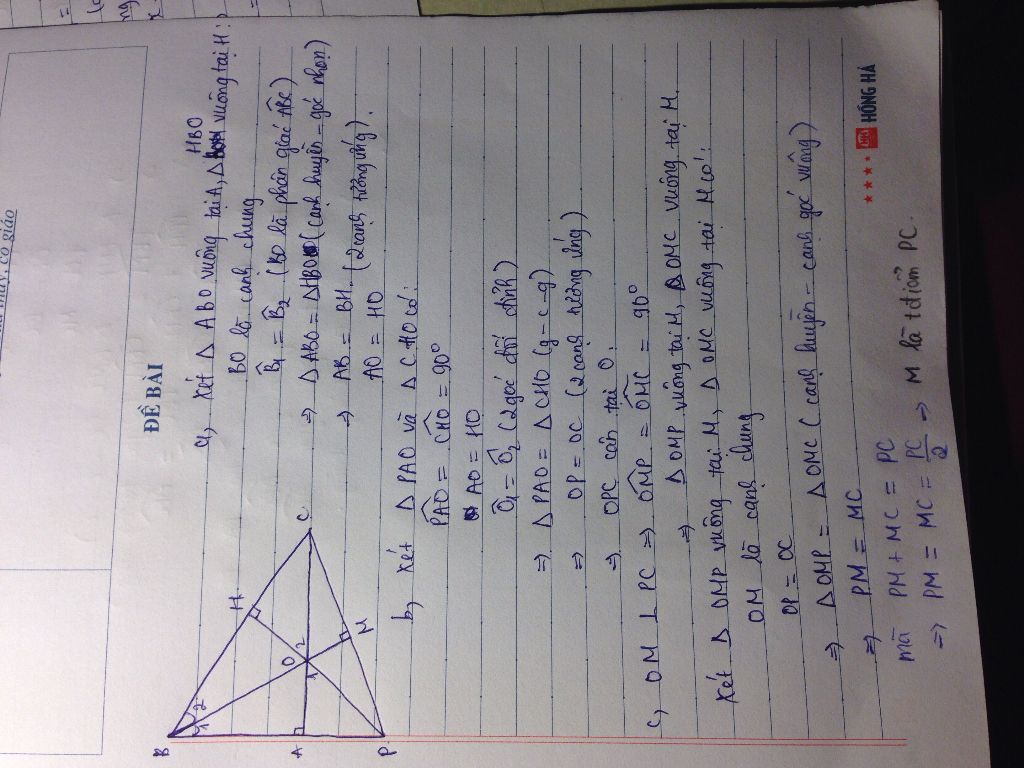 thầy, cô giáo
ĐỀ BÀI
a, Xét Δ ABO vuông tại A, Δ HBO vuông tại H:
BO là cạnh chung
B̂1 = B̂2 (BO là phân giác ABC)
⇒ Δ ABO = Δ HBO (cạnh huyền - góc nhọn)
⇒ AB = BH (2 cạnh tương ứng).
AO = HO
b, Xét Δ PAO và Δ CHO có:
PAO = CHO = 90°
AO = HO
Ô1 = Ô2 (2 góc đối đỉnh)
⇒ Δ PAO = Δ CHO (g-c-g)
⇒ OP = OC (2 cạnh tương ứng)
⇒ OPC cân tại O.
c, OM ⊥ PC ⇒ OMP = OMC = 90°
⇒ Δ OMP vuông tại M, Δ OMC vuông tại M.
Xét Δ OMP vuông tại M, Δ OMC vuông tại M có:
OM là cạnh chung
OP = OC
⇒ Δ OMP = Δ OMC (cạnh huyền - cạnh góc vuông)
⇒ PM = MC
mà PM + MC = PC
⇒ PM = MC = PC/2 ⇒ M là tđiểm PC.
B
1
2
H
A
1
O
2
C
M
P
HỒNG HÀ